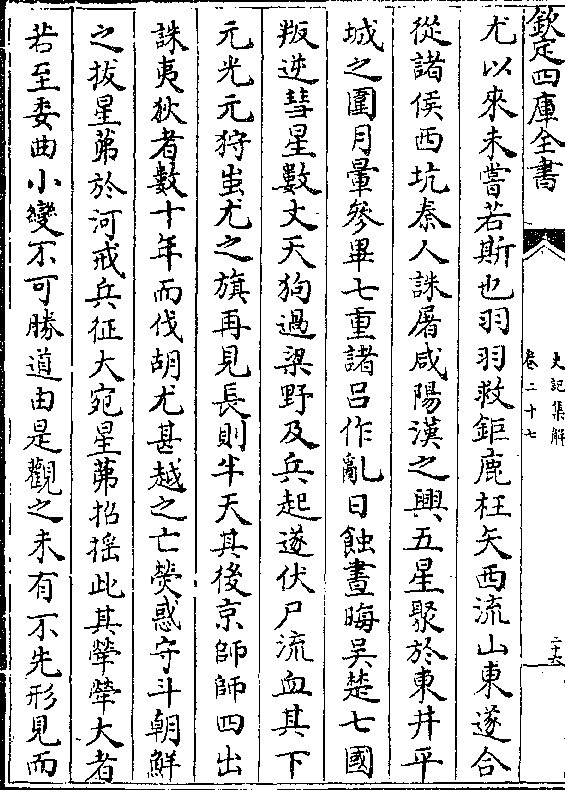 欽定四庫全書
史記集解
卷二十七
二十六
尤以來未嘗若斯也羽羽救鉅鹿枉矢西流山東遂合
從諸侯西坑秦人誅屠咸陽漢之興五星聚於東井平
城之圍月暈參畢七重諸吕作亂日蝕晝晦吳楚七國
叛逆彗星數丈天狗過梁野及兵起遂伏尸流血其下
元光元狩蚩尤之旗再見長則半天其後京師師四出
誅夷狄者數十年而伐胡尤甚越之亡熒惑守斗朝鮮
之拔星茀於河戒兵征大宛星茀招摇此其犖犖大者
若至委曲小變不可勝道由是觀之未有不先形見而